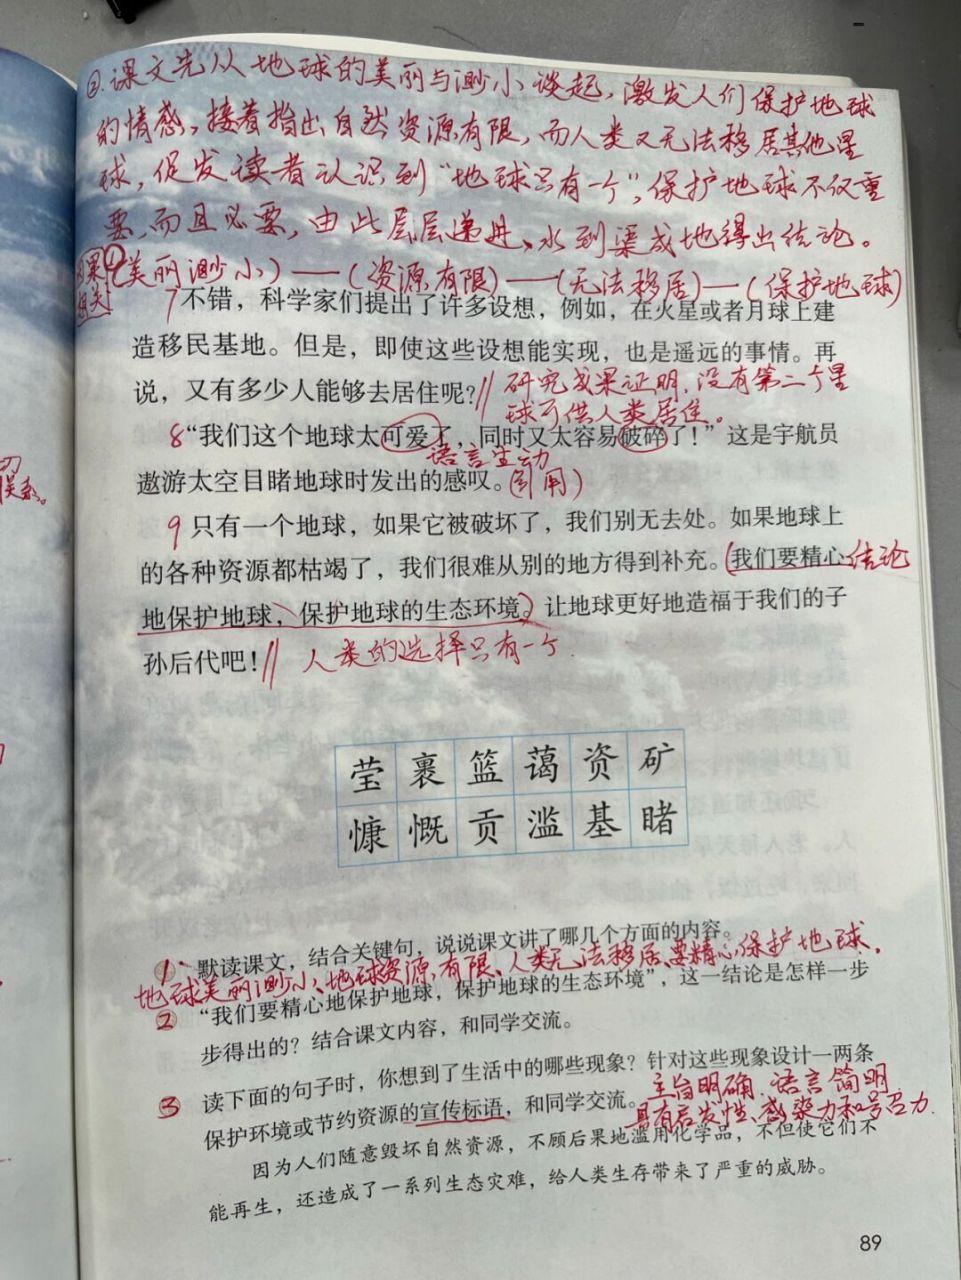 ②.课文先从地球的美丽与渺小谈起，激发人们保护地球
的情感，接着指出自然资源有限，而人类又无法移居其他星
球，促发读者认识到“地球只有一个”，保护地球不仅重
要，而且必要，由此层层递进、水到渠成地得出结论。
(美丽渺小)——(资源有限)——(无法移居)—(保护地球)
相关
7 不错，科学家们提出了许多设想，例如，在火星或者月球上建
造移民基地。但是，即使这些设想能实现，也是遥远的事情。再
说，又有多少人能够去居住呢？// 研究成果证明，没有第二个星
球可供人类居住。
8 “我们这个地球太可爱了，同时又太容易破碎了！”这是宇航员
语言生动
遨游太空目睹地球时发出的感叹。(引用)
9 只有一个地球，如果它被破坏了，我们别无去处。如果地球上
的各种资源都枯竭了，我们很难从别的地方得到补充。(我们要精心 结论
地保护地球，保护地球的生态环境。)让地球更好地造福于我们的子
孙后代吧！// 人类的选择只有一个
莹 裹 篮 蔼 资 矿
慷 慨 贡 滥 基 睹
1 默读课文，结合关键句，说说课文讲了哪几个方面的内容。
地球美丽渺小、地球资源有限、人类无法移居、要精心保护地球。
2 “我们要精心地保护地球，保护地球的生态环境”，这一结论是怎样一步
步得出的？结合课文内容，和同学交流。
3 读下面的句子时，你想到了生活中的哪些现象？针对这些现象设计一两条
保护环境或节约资源的宣传标语，和同学交流。主旨明确、语言简明、
具有启发性、感染力和号召力.
因为人们随意毁坏自然资源，不顾后果地滥用化学品，不但使它们不
能再生，还造成了一系列生态灾难，给人类生存带来了严重的威胁。
89